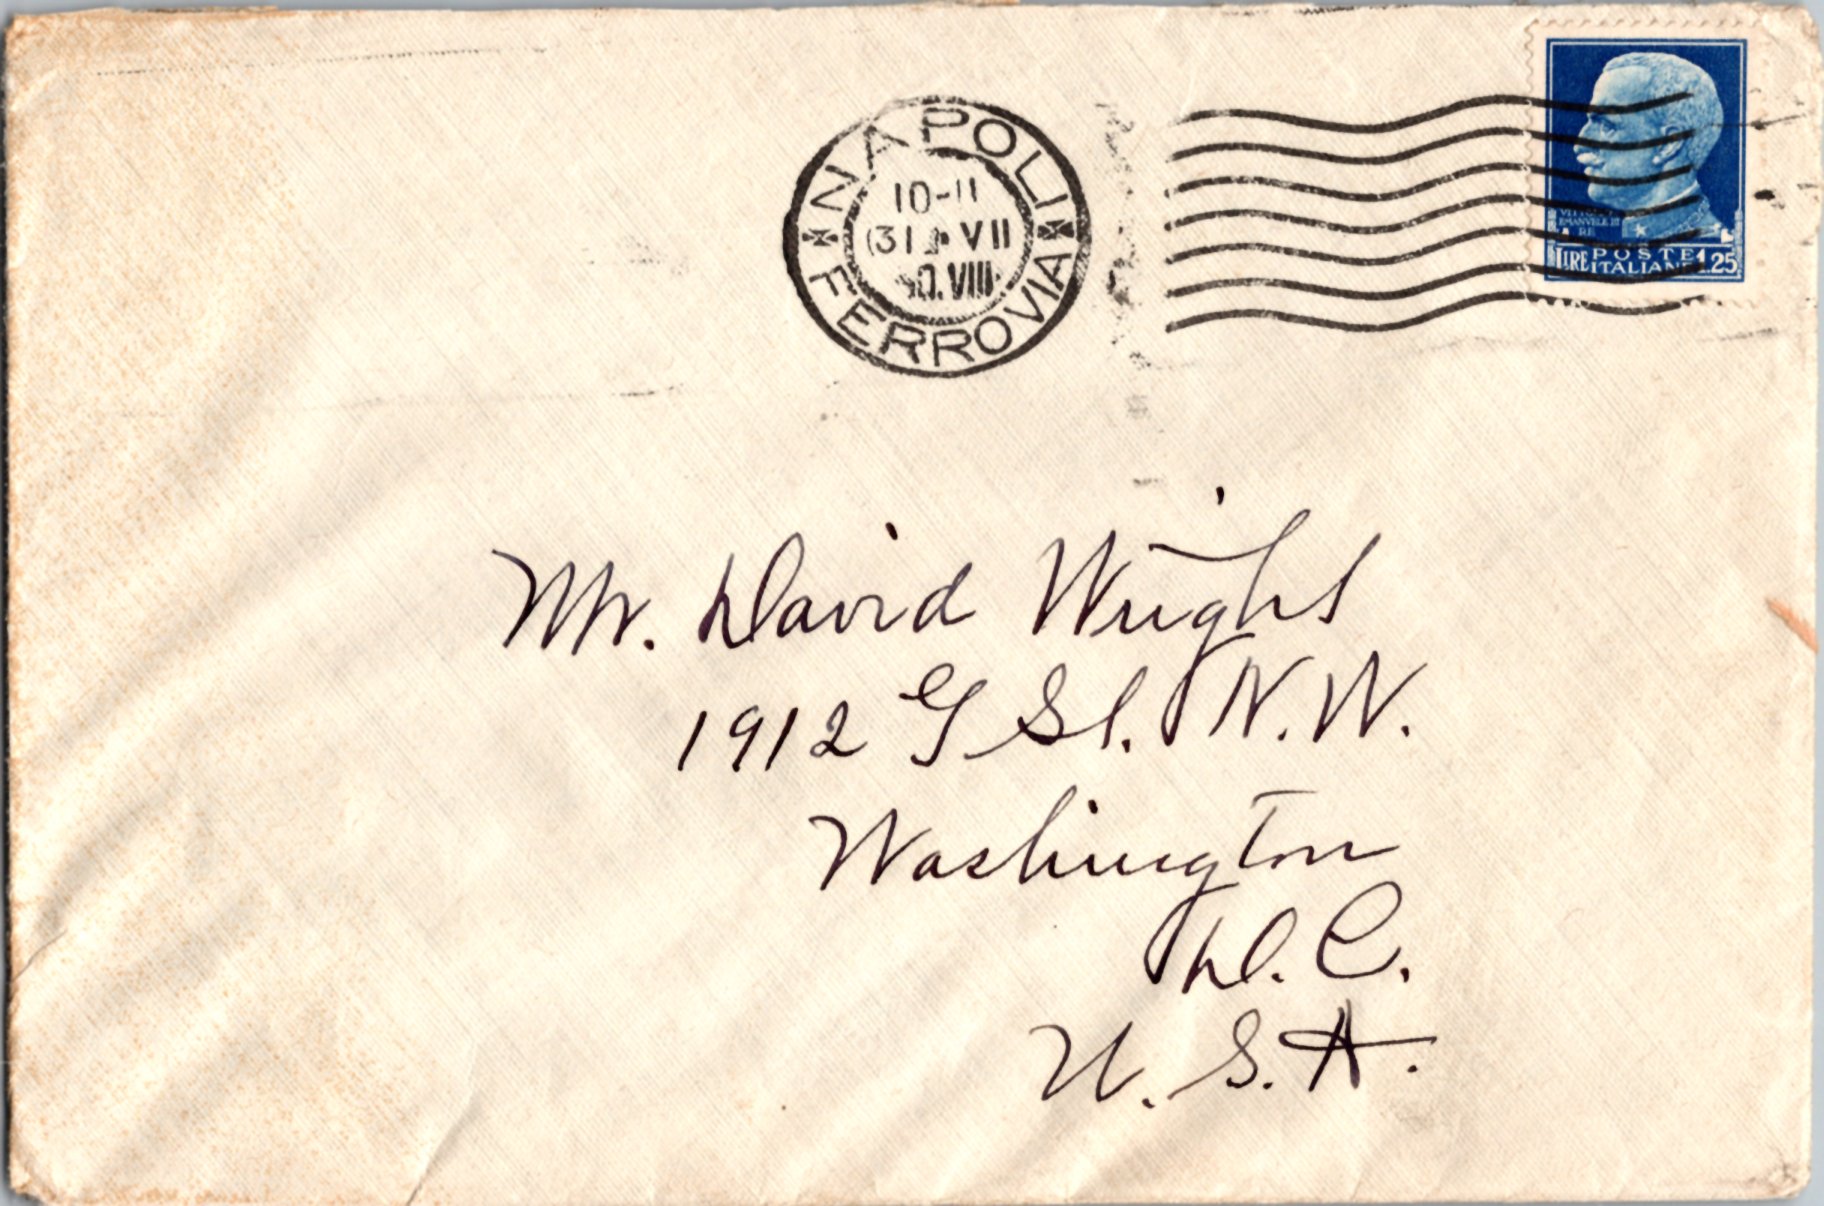 NAPOLI
10-11
31 VII
VIII
FERROVIA
VITTORIO
EMANVELE III
RE
LIRE POSTE 1.25
ITALIANE
Mr. David Wright
1912 G St. N.W.
Washington
D. C.
U. S. A.